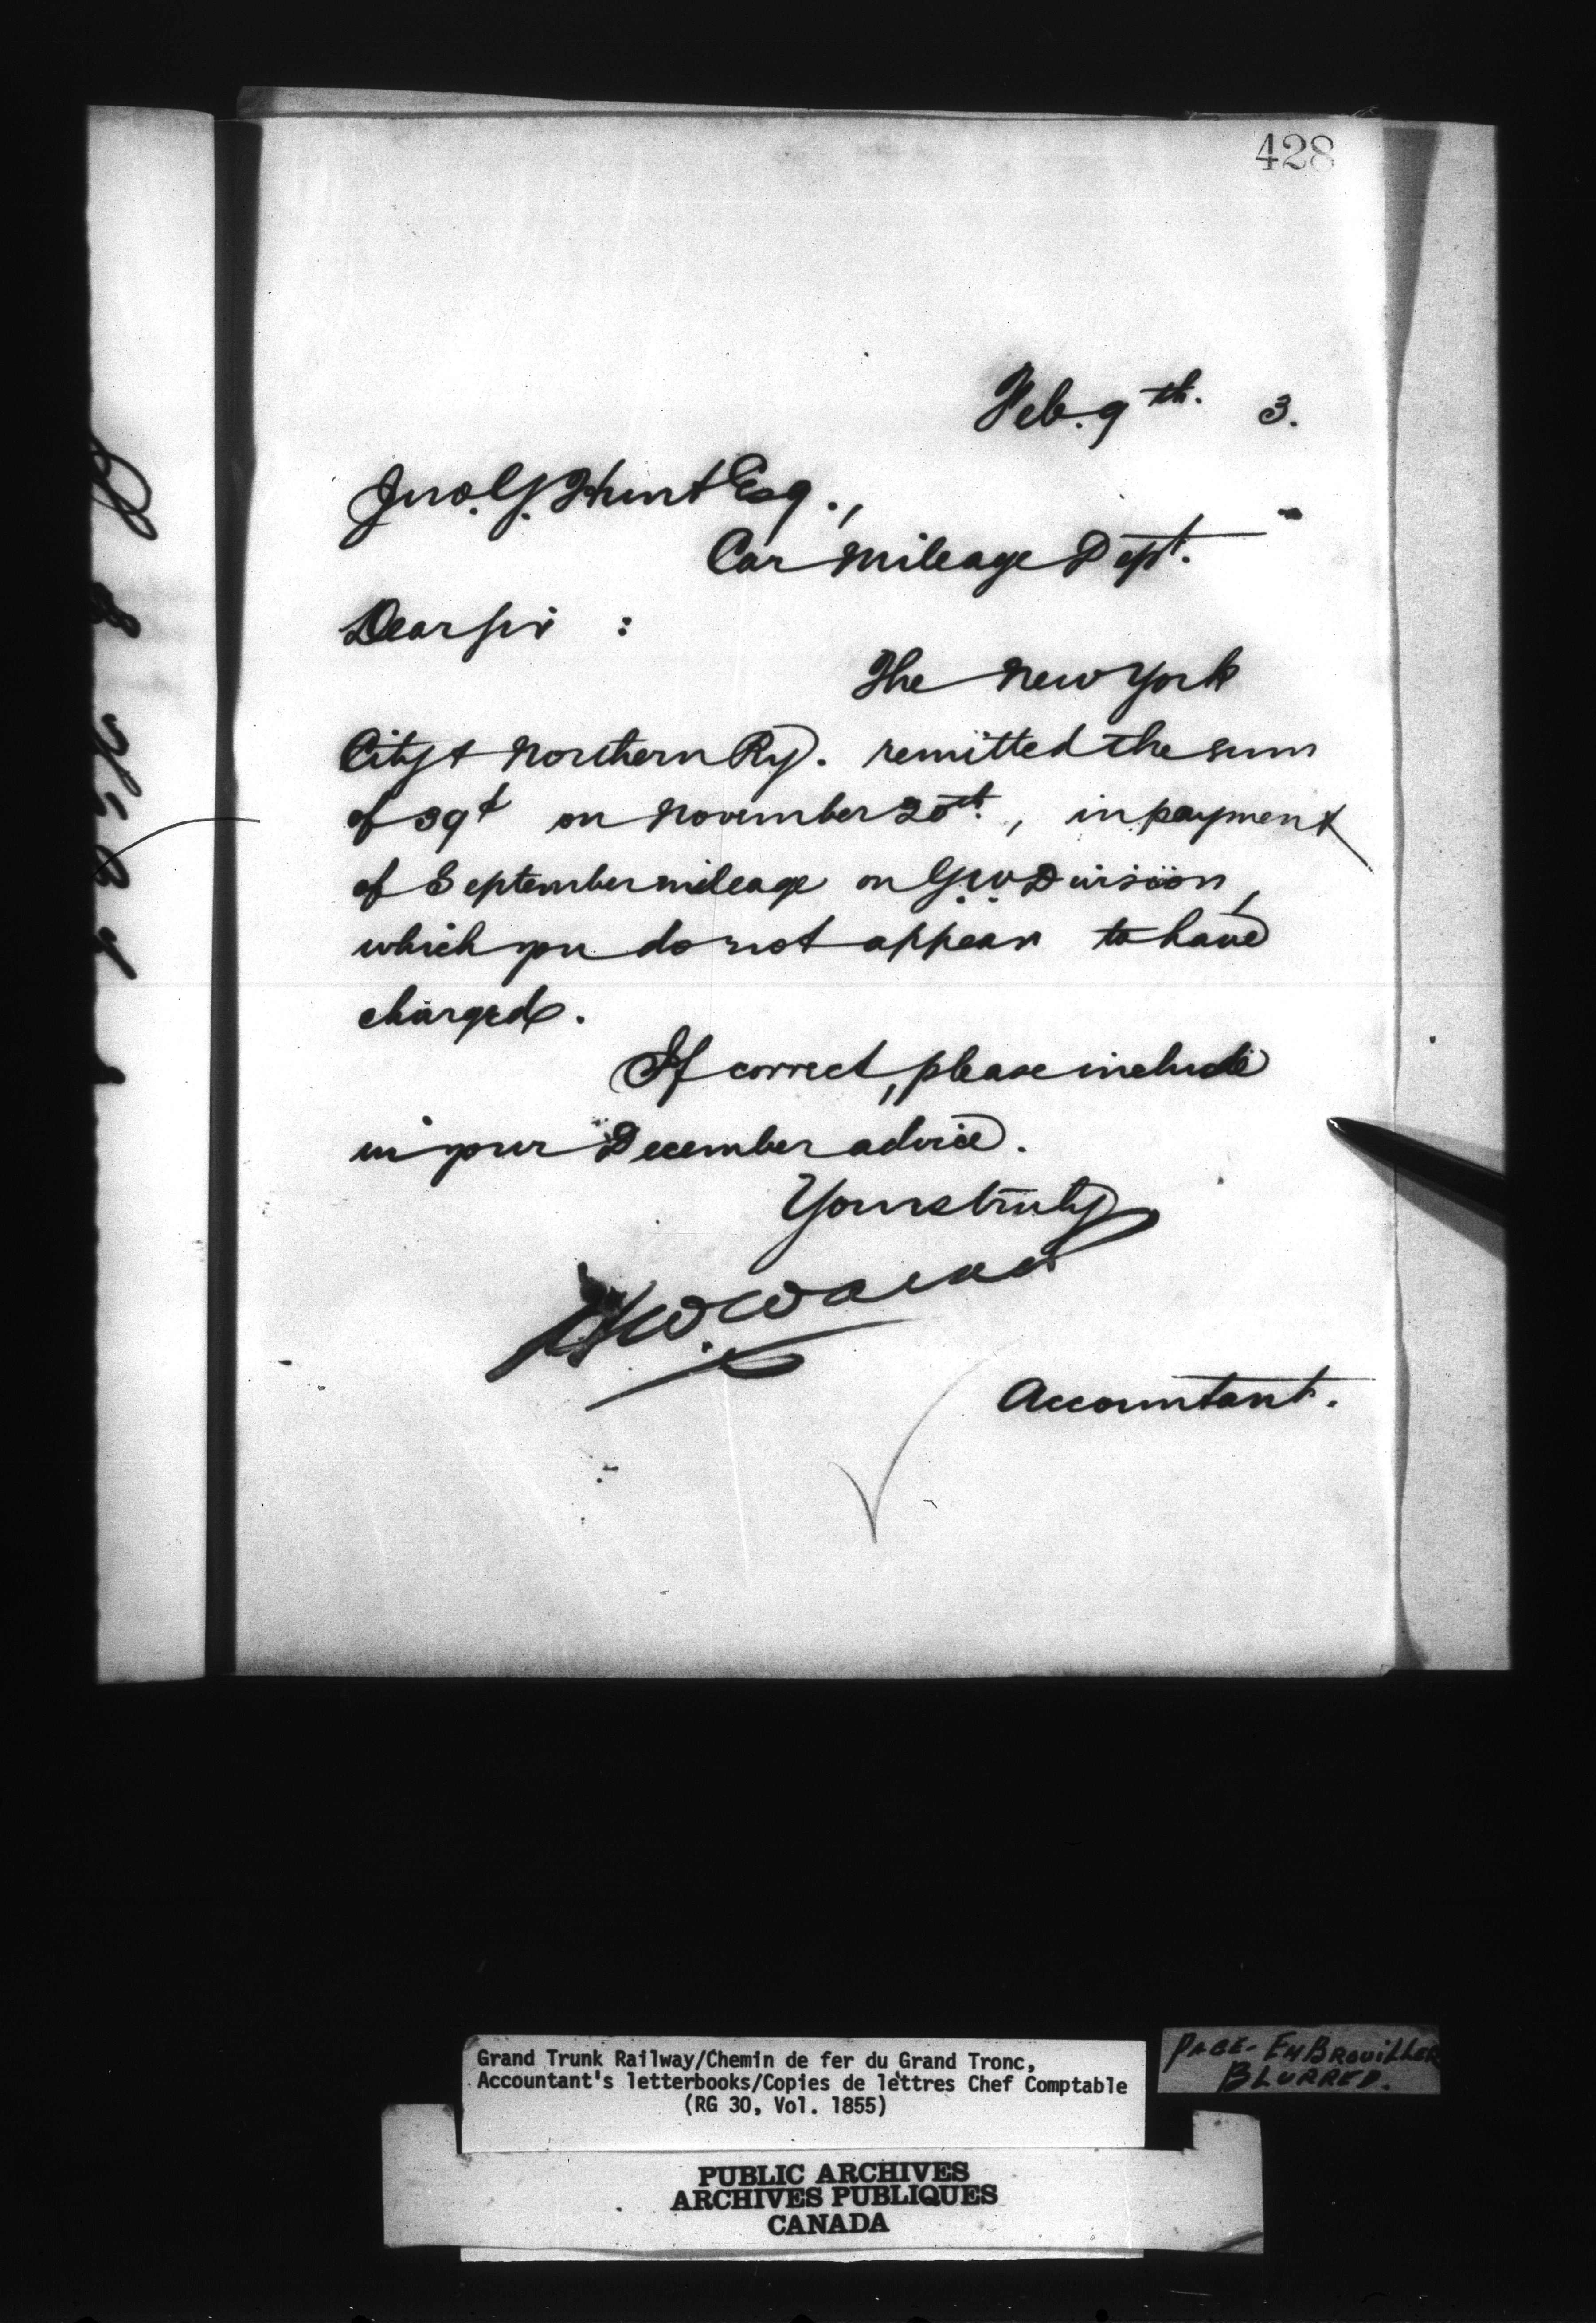 428
Feb. 9th. 3.
Jno. G. Hunt Esq.,
Car Mileage Dept.
Dear Sir :
The New York
City & Northern Ry. remitted the sum
of 39¢ on November 20th., in payment
of September mileage on G.W. Division,
which you do not appear to have
charged.
If correct, please include
in your December advice.
Yours truly
H W. Wa
Accountant.
Grand Trunk Railway/Chemin de fer du Grand Tronc,
Accountant's letterbooks/Copies de lettres Chef Comptable
(RG 30, Vol. 1855)
PAGE - EMBROUILLER
BLURRED.
PUBLIC ARCHIVES
ARCHIVES PUBLIQUES
CANADA